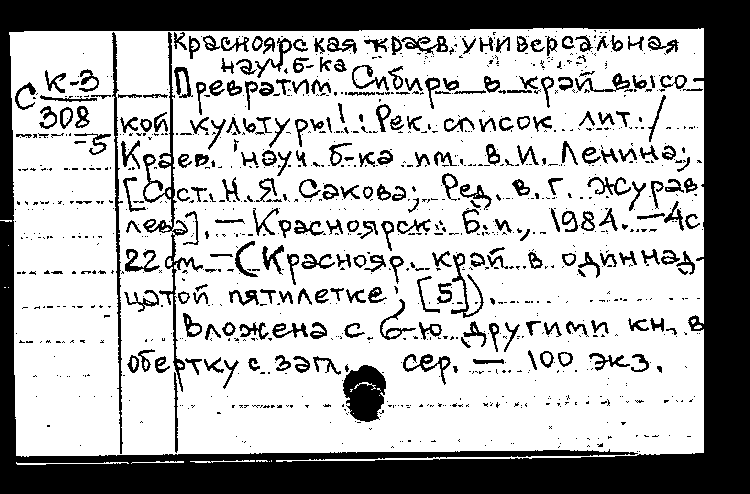 Красноярская краев. универсальная
науч. б-ка
С К-3
308
-5
Превратим Сибирь в край высо-
кой культуры!: Рек. список лит. /
Краев. науч. б-ка им. В.И. Ленина;
[Сост. Н.Я. Сакова; Ред. В.Г. Журав-
лева]. — Красноярск: Б.и., 1984. — 4с.
22 см — (Краснояр. край в одиннад-
цатой пятилетке; [5]).
Вложена с 6-ю другими кн. в
обертку с загл. сер. — 100 экз.